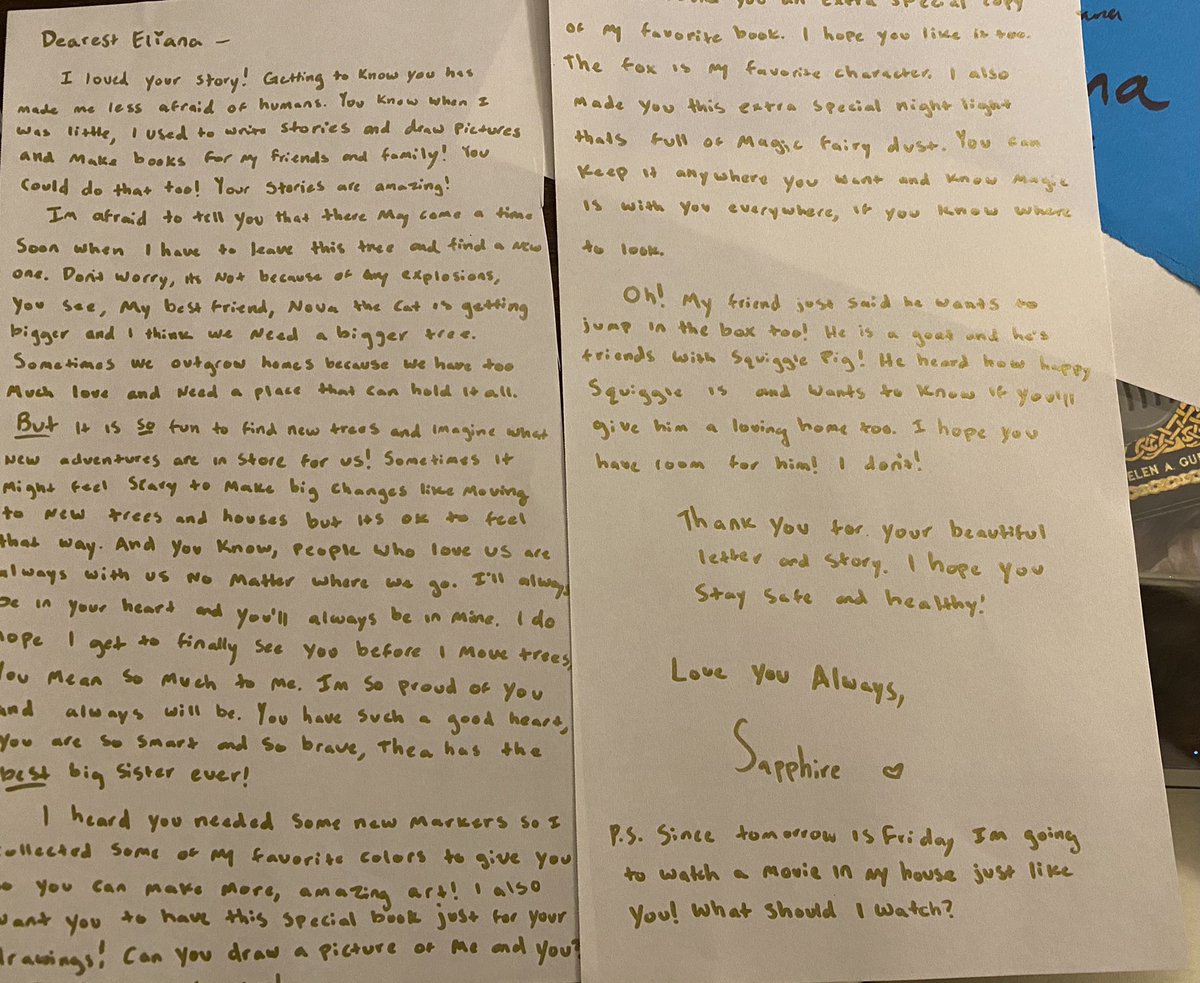 Dearest Eliana –
I loved your story! Getting to know you has
made me less afraid of humans. You know when I
was little, I used to write stories and draw pictures
and make books for my friends and family! You
could do that too! Your stories are amazing!
Im afraid to tell you that there may come a time
soon when I have to leave this tree and find a new
one. Don't worry, its not because of any explosions,
you see, my best friend, Nova the Cat is getting
bigger and I think we need a bigger tree.
Sometimes we outgrow homes because we have too
much love and need a place that can hold it all.
But it is so fun to find new trees and imagine what
new adventures are in store for us! Sometimes it
might feel scary to make big changes like moving
to new trees and houses but its ok to feel
that way. And you know, people who love us are
always with us no matter where we go. I'll always
be in your heart and you'll always be in mine. I do
hope I get to finally see you before I move trees,
You mean so much to me. Im so proud of you
and always will be. You have such a good heart,
you are so smart and so brave, Thea has the
best big sister ever!
I heard you needed some new markers so I
collected some of my favorite colors to give you
so you can make more, amazing art! I also
want you to have this special book just for your
drawings! Can you draw a picture of me and you?
you an extra special copy
of my favorite book. I hope you like it too.
The fox is my favorite character. I also
made you this extra special night light
thats full of magic fairy dust. You can
keep it anywhere you want and know magic
is with you everywhere, if you know where
to look.
Oh! My friend just said he wants to
jump in the box too! He is a goat and he's
friends with Squiggle Pig! He heard how happy
Squiggle is and wants to know if you'll
give him a loving home too. I hope you
have room for him! I don't!
Thank you for your beautiful
letter and story. I hope you
stay safe and healthy!
Love You Always,
Sapphire
P.S. Since tomorrow is Friday Im going
to watch a movie in my house just like
you! What should I watch?
ana
na
ELEN A. GUE